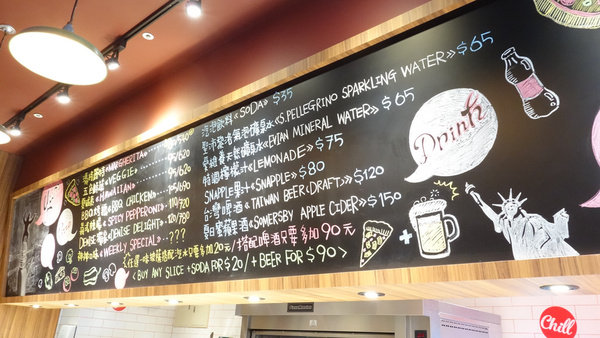 «MARGHERITA» 95/620
«VEGGIE» 95/620
«HAWAIIAN»
BBQ «BBQ CHICKEN»
«SPICY PEPPERONI» 110/720
DENSE «DENSE DELIGHT» 120/780
«WEEKLY SPECIAL» ...???
泡泡飲料«SODA» $35
«S.PELLEGRINO SPARKLING WATER» $65
«EVIAN MINERAL WATER» $65
特調檸檬汁«LEMONADE» $75
SNAPPLE果汁«SNAPPLE» $80
台灣啤酒«TAIWAN BEER (DRAFT)» $120
蘋果啤酒«SOMERSBY APPLE CIDER» $150
20元/搭配啤酒只要多加90元
<BUY ANY SLICE +SODA FOR $20/ + BEER FOR $90>
Drink
+
Chill